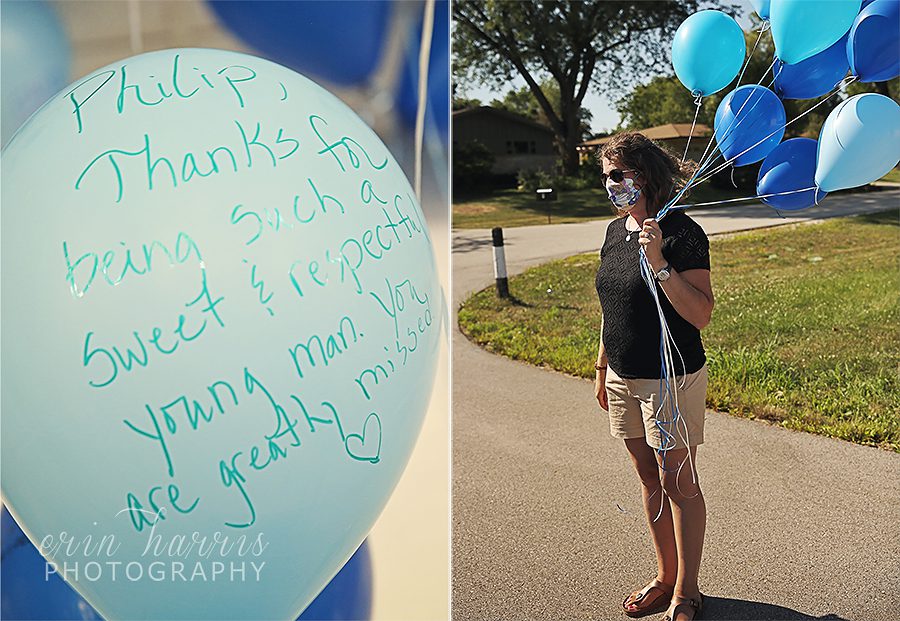 Philip,
Thanks for
being such a
sweet & respectful
young man. You
are greatly missed
erin harris
PHOTOGRAPHY